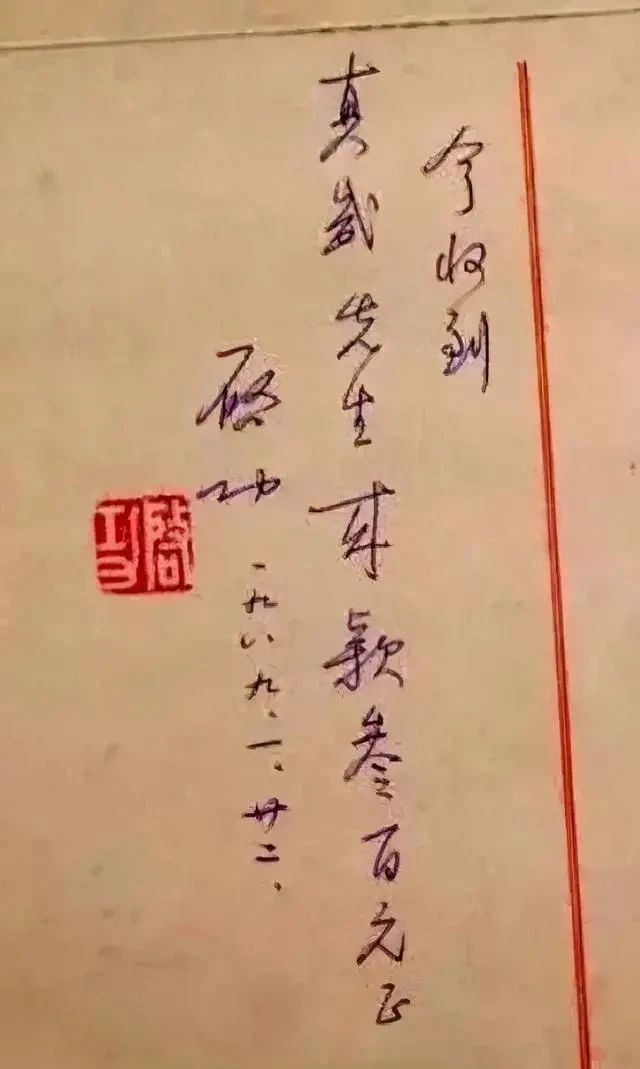 今收到
真先生款叁百元正
启功 一九八九、一、廿二、
啟功